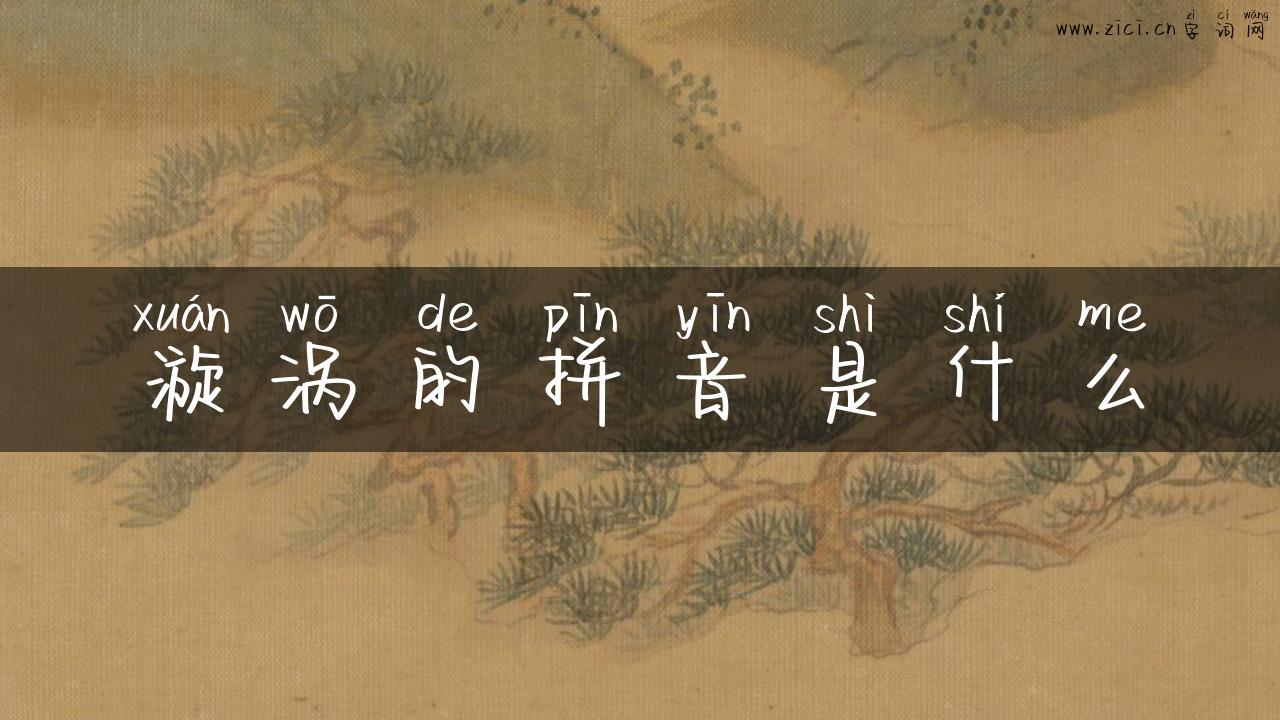 zì cí wǎng
www.zici.cn 字词网
xuán wō de pīn yīn shì shí me
漩涡的拼音是什么